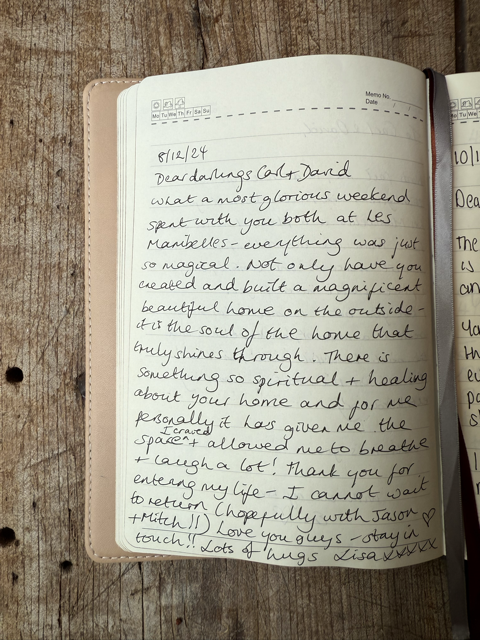 Memo No.
Mo Tu We Th Fr Sa Su
Date
8/12/24
Dear darlings Carl + David
what a most glorious weekend
spent with you both at Les
Manibelles - everything was just
so magical. Not only have you
created and built a magnificent
beautiful home on the outside -
it is the soul of the home that
truly shines through. There is
something so spiritual + healing
about your home and for me
personally it has given me the
space I craved + allowed me to breathe
+ laugh a lot! Thank you for
entering my life - I cannot wait
to return (hopefully with Jason
+ Mitch!!) Love you guys - stay in
touch!! Lots of hugs Lisa xxxxx
10/1
Dea
The
is
an